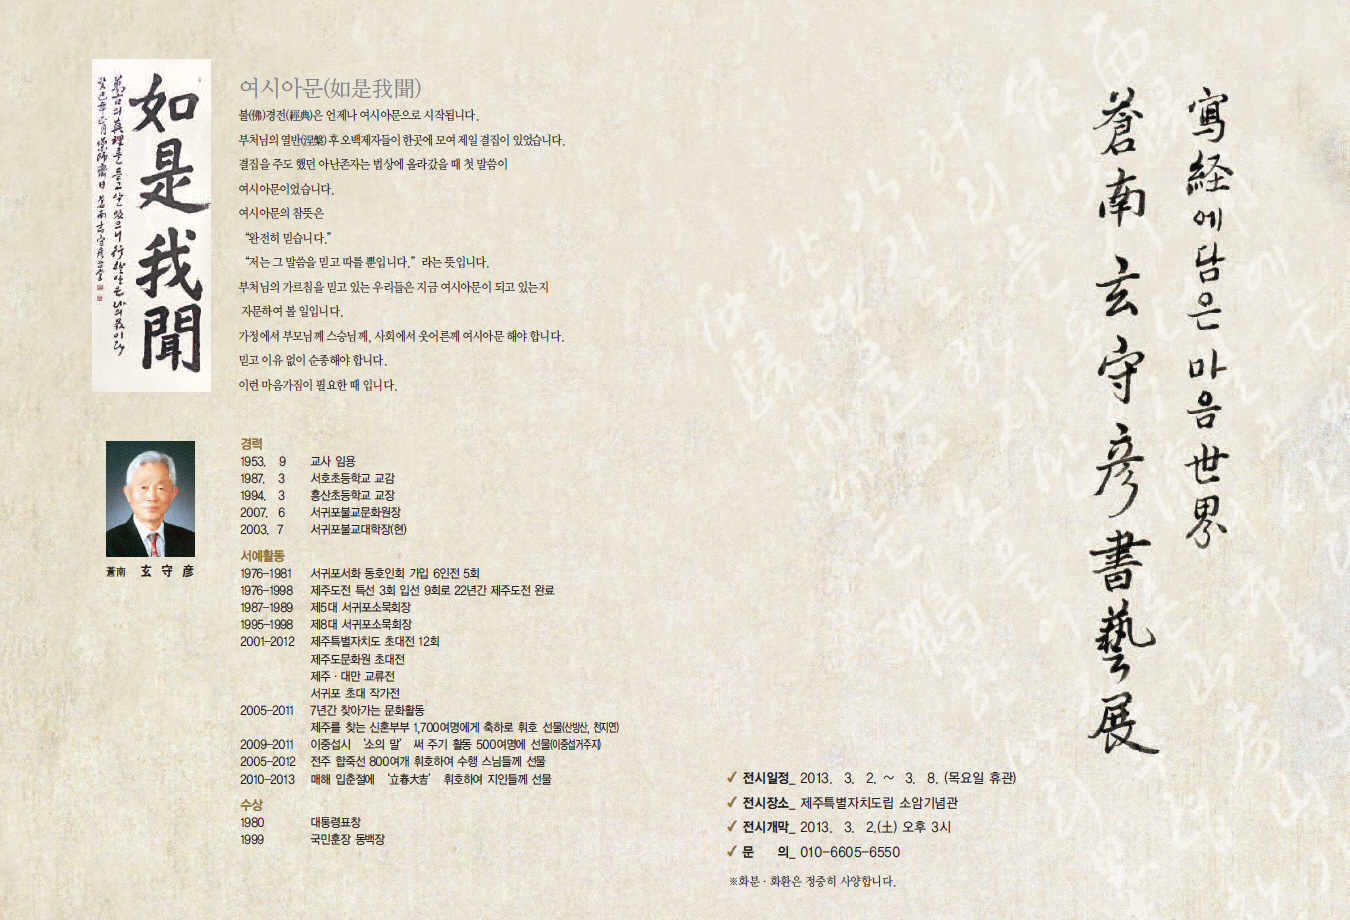 如是我聞
여시아문(如是我聞)
불(佛)경전(經典)은 언제나 여시아문으로 시작됩니다.
부처님의 열반(涅槃) 후 오백제자들이 한곳에 모여 제일 결집이 있었습니다.
결집을 주도 했던 아난존자는 법상에 올라갔을 때 첫 말씀이
여시아문이었습니다.
여시아문의 참뜻은
“완전히 믿습니다.”
“저는 그 말씀을 믿고 따를 뿐입니다.” 라는 뜻입니다.
부처님의 가르침을 믿고 있는 우리들은 지금 여시아문이 되고 있는지
자문하여 볼 일입니다.
가정에서 부모님께 스승님께, 사회에서 웃어른께 여시아문 해야 합니다.
믿고 이유 없이 순종해야 합니다.
이런 마음가짐이 필요한 때 입니다.
蒼南 玄守彦
경력
1953. 9 교사 임용
1987. 3 서호초등학교 교감
1994. 3 흥산초등학교 교장
2007. 6 서귀포불교문화원장
2003. 7 서귀포불교대학장(현)
서예활동
1976-1981 서귀포서화 동호인회 가입 6인전 5회
1976-1998 제주도전 특선 3회 입선 9회로 22년간 제주도전 완료
1987-1989 제5대 서귀포소묵회장
1995-1998 제8대 서귀포소묵회장
2001-2012 제주특별자치도 초대전 12회
제주도문화원 초대전
제주 · 대만 교류전
서귀포 초대 작가전
2005-2011 7년간 찾아가는 문화활동
제주를 찾는 신혼부부 1,700여명에게 축하로 휘호 선물(산방산, 천지연)
2009-2011 이중섭시 ‘소의 말’ 써 주기 활동 500여명에 선물(이중섭거주지)
2005-2012 전주 합죽선 800여개 휘호하여 수행 스님들께 선물
2010-2013 매해 입춘절에 ‘立春大吉’ 휘호하여 지인들께 선물
수상
1980 대통령표창
1999 국민훈장 동백장
寫経에 담은 마음 世界
蒼南 玄守彦 書藝展
✓ 전시일정_ 2013. 3. 2. ~ 3. 8. (목요일 휴관)
✓ 전시장소_ 제주특별자치도립 소암기념관
✓ 전시개막_ 2013. 3. 2.(土) 오후 3시
✓ 문 의_ 010-6605-6550
※화분 · 화환은 정중히 사양합니다.